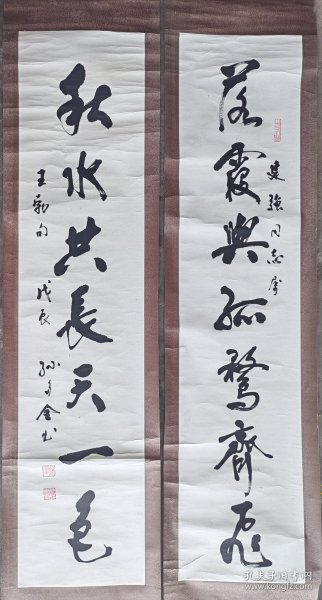 落霞與孤鶩齊飛
建強同志屬
秋水共長天一色
王勃句 戊辰 孫自金书
孔夫子旧书网